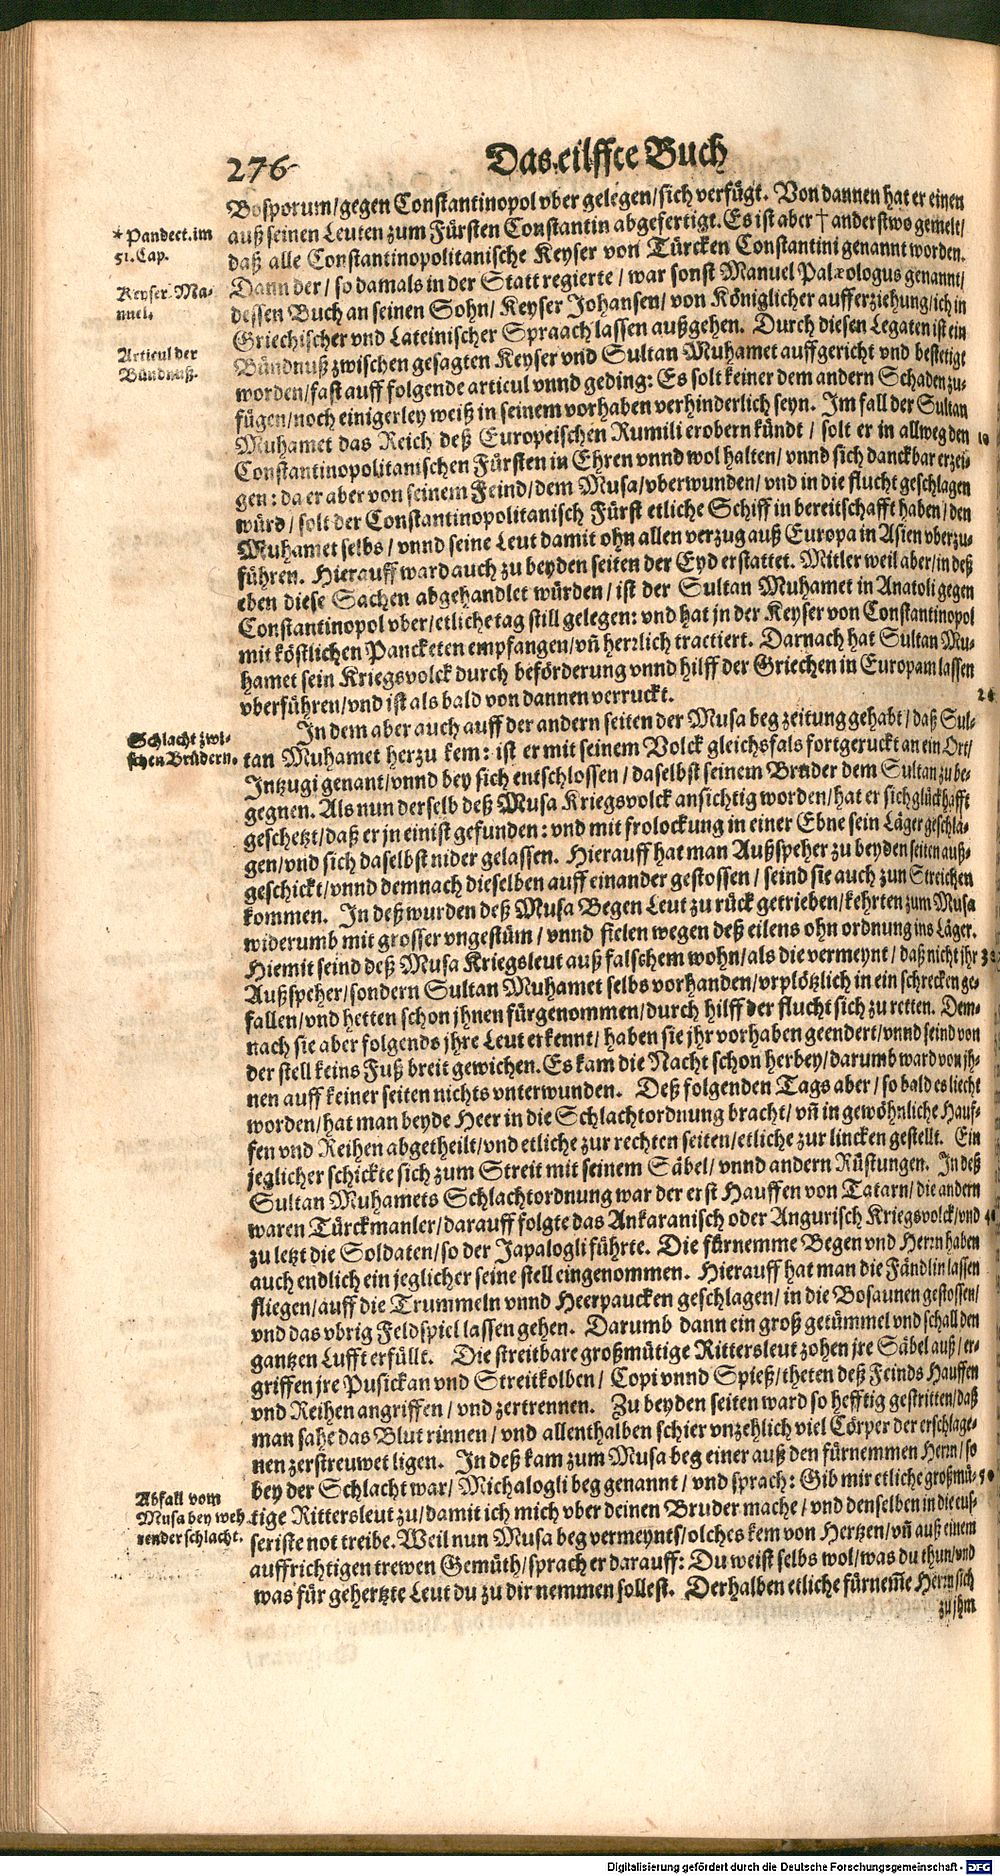 276 Das eilffte Buch
Bosporum/gegen Constantinopol vber gelegen/sich verfügt. Von dannen hat er einen
* Pandect. im
51. Cap.
auß seinen Leuten zum Fürsten Constantin abgefertigt. Es ist aber † anderstwo gemelt/
daß alle Constantinopolitanische Keyser von Türcken Constantini genannt worden.
Keyser Ma-
nuel.
Dann der/ so damals in der Statt regierte/ war sonst Manuel Palæologus genannt/
dessen Buch an seinen Sohn/ Keyser Johansen/ von Königlicher aufferziehung/ich in
Griechischer vnd Lateinischer Spraach lassen außgehen. Durch diesen Legaten ist ein
Articul der
Bündnuß.
Bündnuß zwischen gesagten Keyser vnd Sultan Muhamet auffgericht vnd bestetigt
worden/fast auff folgende articul vnnd geding: Es solt keiner dem andern Schaden zu-
fügen/noch einigerley weiß in seinem vorhaben verhinderlich seyn. Im fall der Sultan
Muhamet das Reich deß Europeischen Rumili erobern kündt/ solt er in allweg den 10
Constantinopolitanischen Fürsten in Ehren vnnd wol halten/ vnnd sich danckbar erzei-
gen: da er aber von seinem Feind/dem Musa/vberwunden/ vnd in die flucht geschlagen
würd/ solt der Constantinopolitanisch Fürst etliche Schiff in bereitschafft haben/ den
Muhamet selbs/ vnnd seine Leut damit ohn allen verzug auß Europa in Asien vberzu-
führen. Hierauff ward auch zu beyden seiten der Eyd erstattet. Mitler weil aber/in deß
eben diese Sachen abgehandlet würden/ ist der Sultan Muhamet in Anatoli gegen
Constantinopol vber/etliche tag still gelegen: vnd hat jn der Keyser von Constantinopol
mit köstlichen Pancketen empfangen/vñ herrlich tractiert. Darnach hat Sultan Mu-
hamet sein Kriegsvolck durch beförderung vnnd hilff der Griechen in Europam lassen
vberführen/vnd ist als bald von dannen verruckt. 20
Schlacht zwi-
schen Brüdern.
In dem aber auch auff der andern seiten der Musa beg zeitung gehabt/ daß Sul-
tan Muhamet herzu kem: ist er mit seinem Volck gleichsfals fortgeruckt an ein Ort/
Intzugi genant/vnnd bey sich entschlossen/ daselbst seinem Bruder dem Sultan zu be-
gegnen. Als nun derselb deß Musa Kriegsvolck ansichtig worden/hat er sich glückhafft
geschetzt/daß er jn einist gefunden: vnd mit frolockung in einer Ebne sein Läger geschla-
gen/vnd sich daselbst nider gelassen. Hierauff hat man Außspeher zu beyden seiten auß-
geschickt/vnnd demnach dieselben auff einander gestossen/ seind sie auch zun Streichen
kommen. In deß wurden deß Musa Begen Leut zu rück getrieben/kehrten zum Musa
widerumb mit grosser vngestüm/ vnnd fielen wegen deß eilens ohn ordnung ins Läger.
Hiemit seind deß Musa Kriegsleut auß falschem wohn/als die vermeynt/ daß nicht jhr
Außspeher/sondern Sultan Muhamet selbs vorhanden/vrplötzlich in ein schrecken ge-
fallen/vnd hetten schon jhnen fürgenommen/durch hilff der flucht sich zu retten. Dem-
nach sie aber folgends jhre Leut erkennt/ haben sie jhr vorhaben geendert/vnnd seind von
der stell keins Fuß breit gewichen. Es kam die Nacht schon herbey/darumb ward von jh-
nen auff keiner seiten nichts vnterwunden. Deß folgenden Tags aber/ so bald es liecht
worden/hat man beyde Heer in die Schlachtordnung bracht/ vñ in gewöhnliche Hauf-
fen vnd Reihen abgetheilt/vnd etliche zur rechten seiten/etliche zur lincken gestellt. Ein
jeglicher schickte sich zum Streit mit seinem Säbel/ vnnd andern Rüstungen. In deß
Sultan Muhamets Schlachtordnung war der erst Hauffen von Tatarn/ die andern
waren Türckmanler/darauff folgte das Ankaranisch oder Angurisch Kriegsvolck/vnd 40
zu letzt die Soldaten/so der Japalogli führte. Die fürnemme Begen vnd Herrn haben
auch endlich ein jeglicher seine stell eingenommen. Hierauff hat man die Fändlin lassen
fliegen/auff die Trummeln vnnd Heerpaucken geschlagen/ in die Bosaunen gestossen/
vnd das vbrig Feldspiel lassen gehen. Darumb dann ein groß getümmel vnd schall den
gantzen Lufft erfüllt. Die streitbare großmütige Rittersleut zohen jre Säbel auß/ er-
griffen jre Pusickan vnd Streitkolben/ Copi vnnd Spieß/theten deß Feinds Hauffen
vnd Reihen angriffen/ vnd zertrennen. Zu beyden seiten ward so hefftig gestritten/daß
man sahe das Blut rinnen/ vnd allenthalben schier vnzehlich viel Cörper der erschlage-
nen zerstreuwet ligen. In deß kam zum Musa beg einer auß den fürnemmen Herrn/ so
bey der Schlacht war/ Michalogli beg genannt/ vnd sprach: Gib mir etliche großmü- 50
Abfall vom
Musa bey weh-
render schlacht.
tige Rittersleut zu/damit ich mich vber deinen Bruder mache/ vnd denselben in die eus-
seriste not treibe. Weil nun Musa beg vermeynts/olches kem von Hertzen/vñ auß einem
auffrichtigen trewen Gemüth/sprach er darauff: Du weist selbs wol/was du thun/vnd
was für gehertzte Leut du zu dir nemmen sollest. Derhalben etliche fürnem̃e Herrn sich
zu jhm
Digitalisierung gefördert durch die Deutsche Forschungsgemeinschaft - DFG